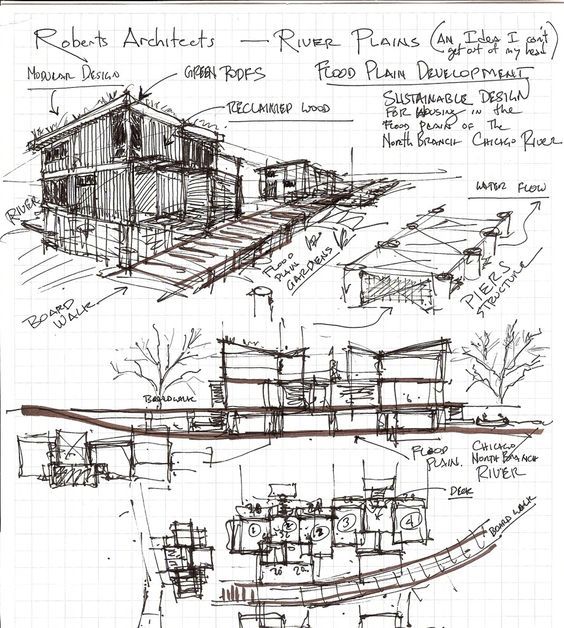 Roberts Architects — RIVER PLAINS (AN IDEA I can't
get out of my head)
MODULAR DESIGN
GREEN ROOFS
FLOOD PLAIN DEVELOPMENT
RECLAIMED WOOD
SUSTAINABLE DESIGN
FOR HOUSING in the
FLOOD PLAINS OF THE
NORTH BRANCH CHICAGO RIVER
WATER FLOW
RIVER
FLOOD
PLAIN
GARDENS
PIERS
STRUCTURE
BOARD
WALK
BOARDWALK
FLOOD
PLAIN.
CHICAGO
NORTH BRANCH
RIVER
DECK
1
2
2
3
4
BOARD WALK